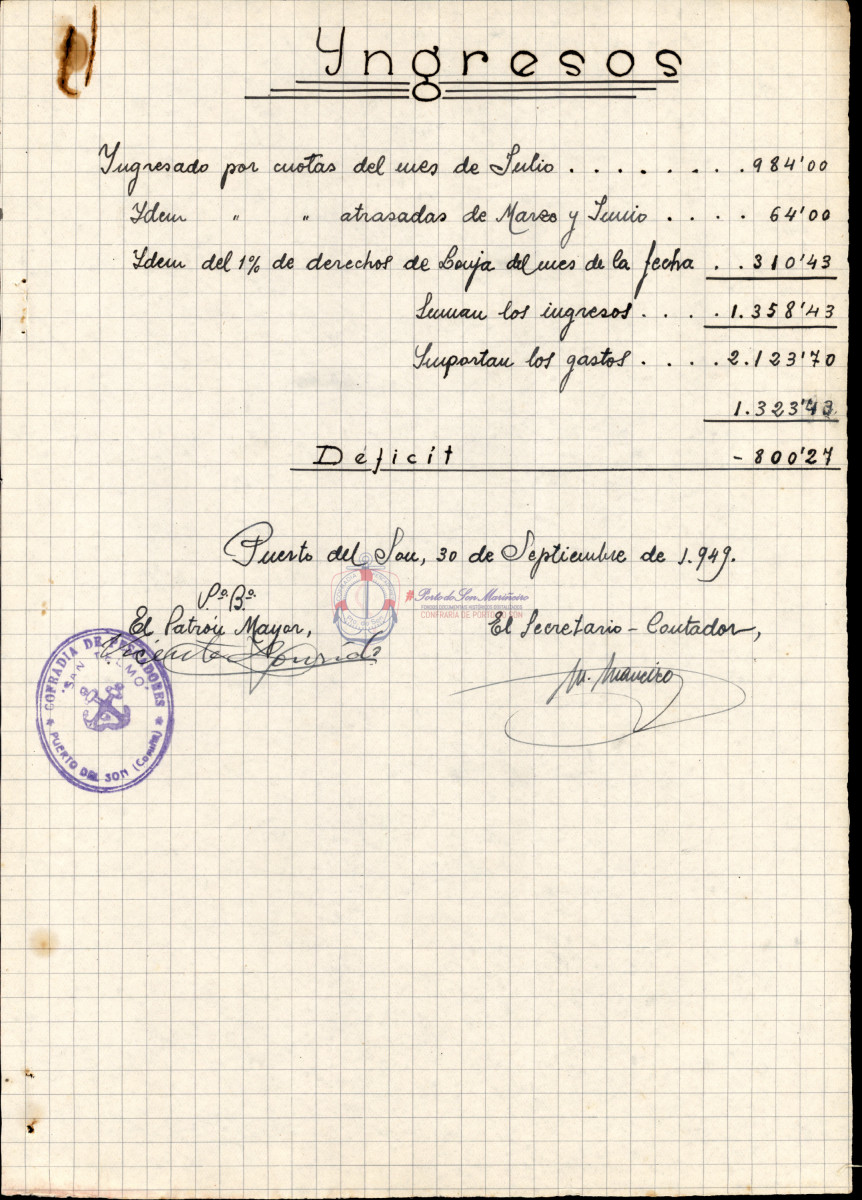 Yngresos
Yngresado por cuotas del mes de Julio . . . . . . . . 984'00
Ydem " " atrasadas de Marzo y Junio . . . . 64'00
Ydem del 1% de derechos de Lonja del mes de la fecha . . 310'43
Suman los ingresos . . . . 1.358'43
Importan los gastos . . . . 2.123'70
1.323'43
Déficit - 800'27
Puerto del Son, 30 de Septiembre de 1.949.
Vº. Bº.
El Patrón Mayor,
El Secretario-Contador,
Vicente
M. Maneiro
COFRADIA DE PESCADORES
"SAN TELMO"
PUERTO DEL SON (Coruña)
#Porto do Son Mariñeiro
FONDOS DOCUMENTAIS HISTÓRICOS DIXITALIZADOS
CONFRARIA DE PORTO DO SON